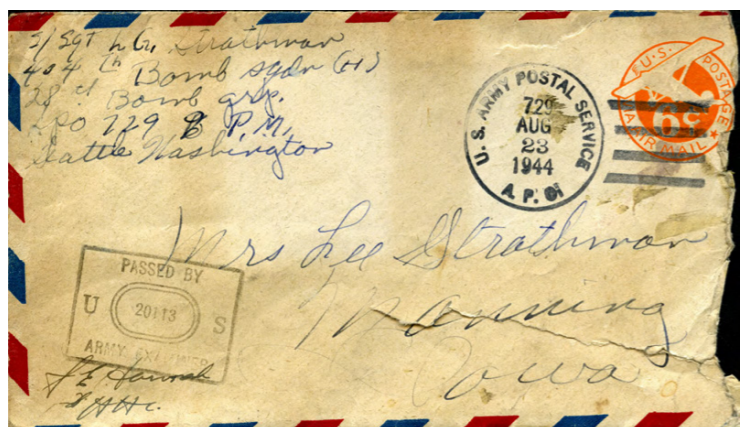 S/Sgt L. G. Strathman
404th Bomb sqdn (H)
28th Bomb grp.
APO 729 % P.M.
Seattle Washington
U.S. ARMY POSTAL SERVICE
729
AUG
23
1944
A. P. O.
U.S. POSTAGE
6¢
AIR MAIL
Mrs Lee Strathman
Manning
Iowa
PASSED BY
U 20113 S
ARMY EXAMINER